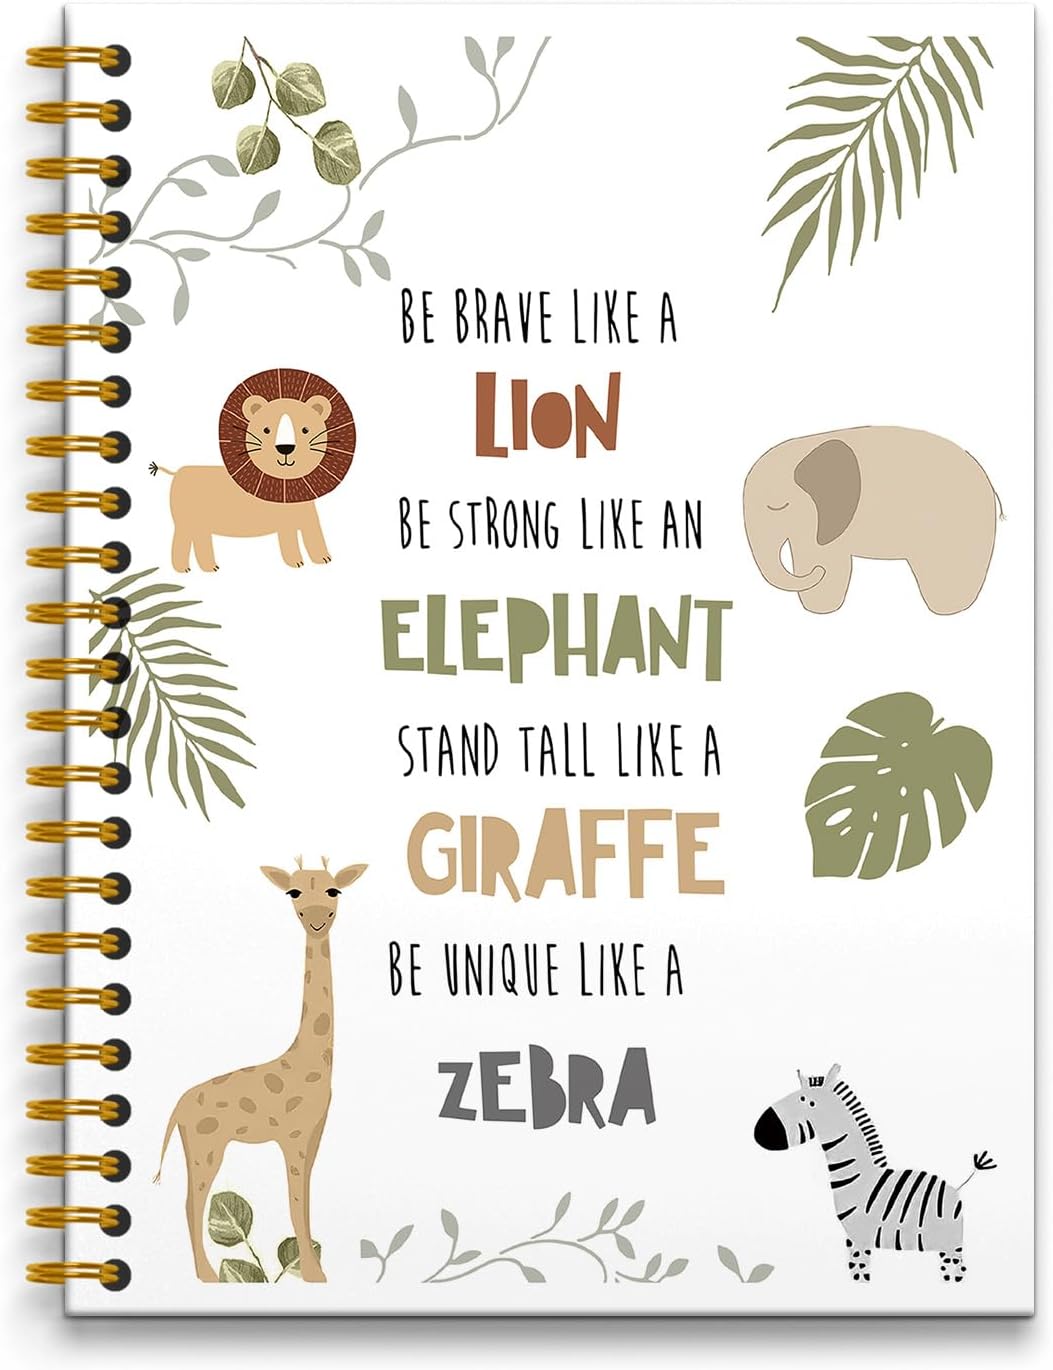 BE BRAVE LIKE A
LION
BE STRONG LIKE AN
ELEPHANT
STAND TALL LIKE A
GIRAFFE
BE UNIQUE LIKE A
ZEBRA